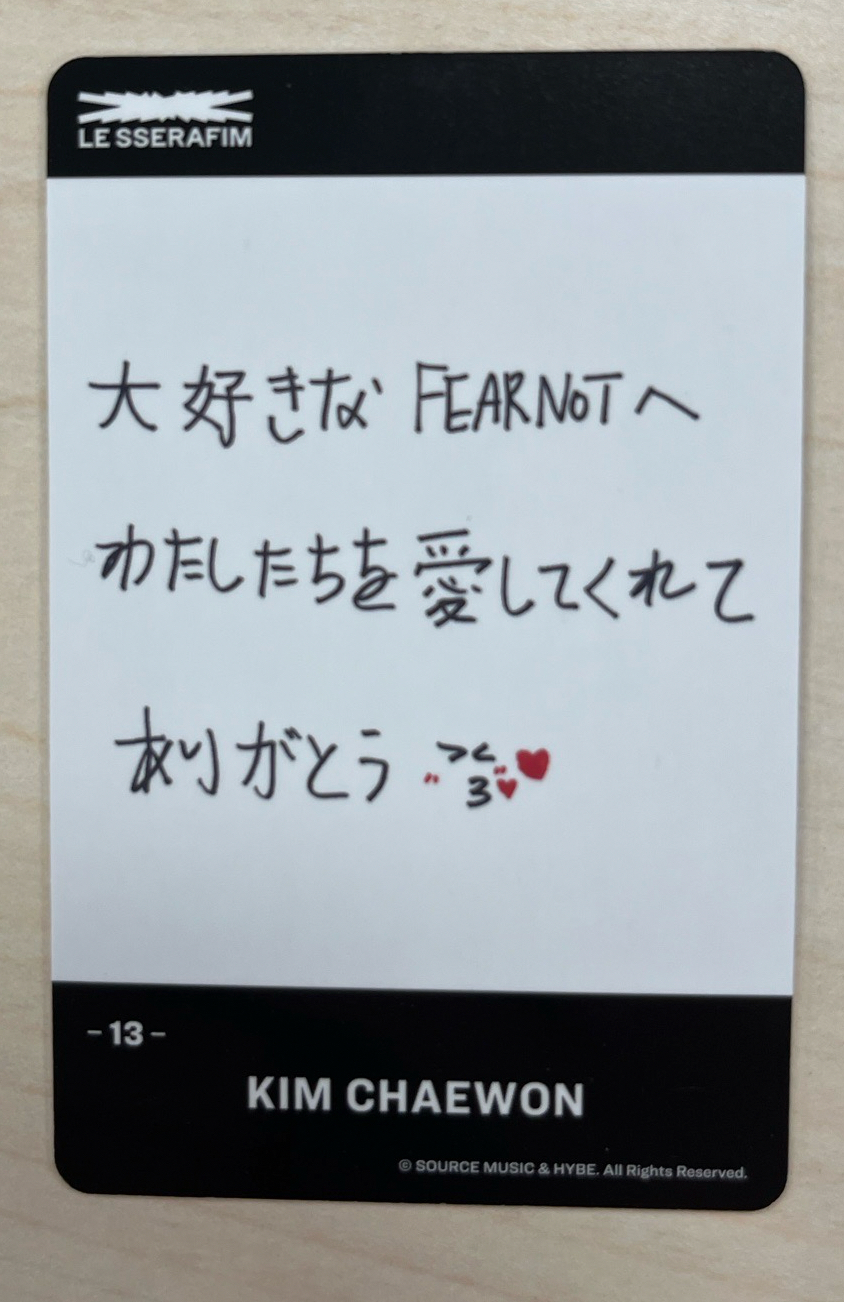 LE SSERAFIM
大好きな FEARNOTへ
わたしたちを愛してくれて
ありがとう
-13-
KIM CHAEWON
© SOURCE MUSIC & HYBE. All Rights Reserved.